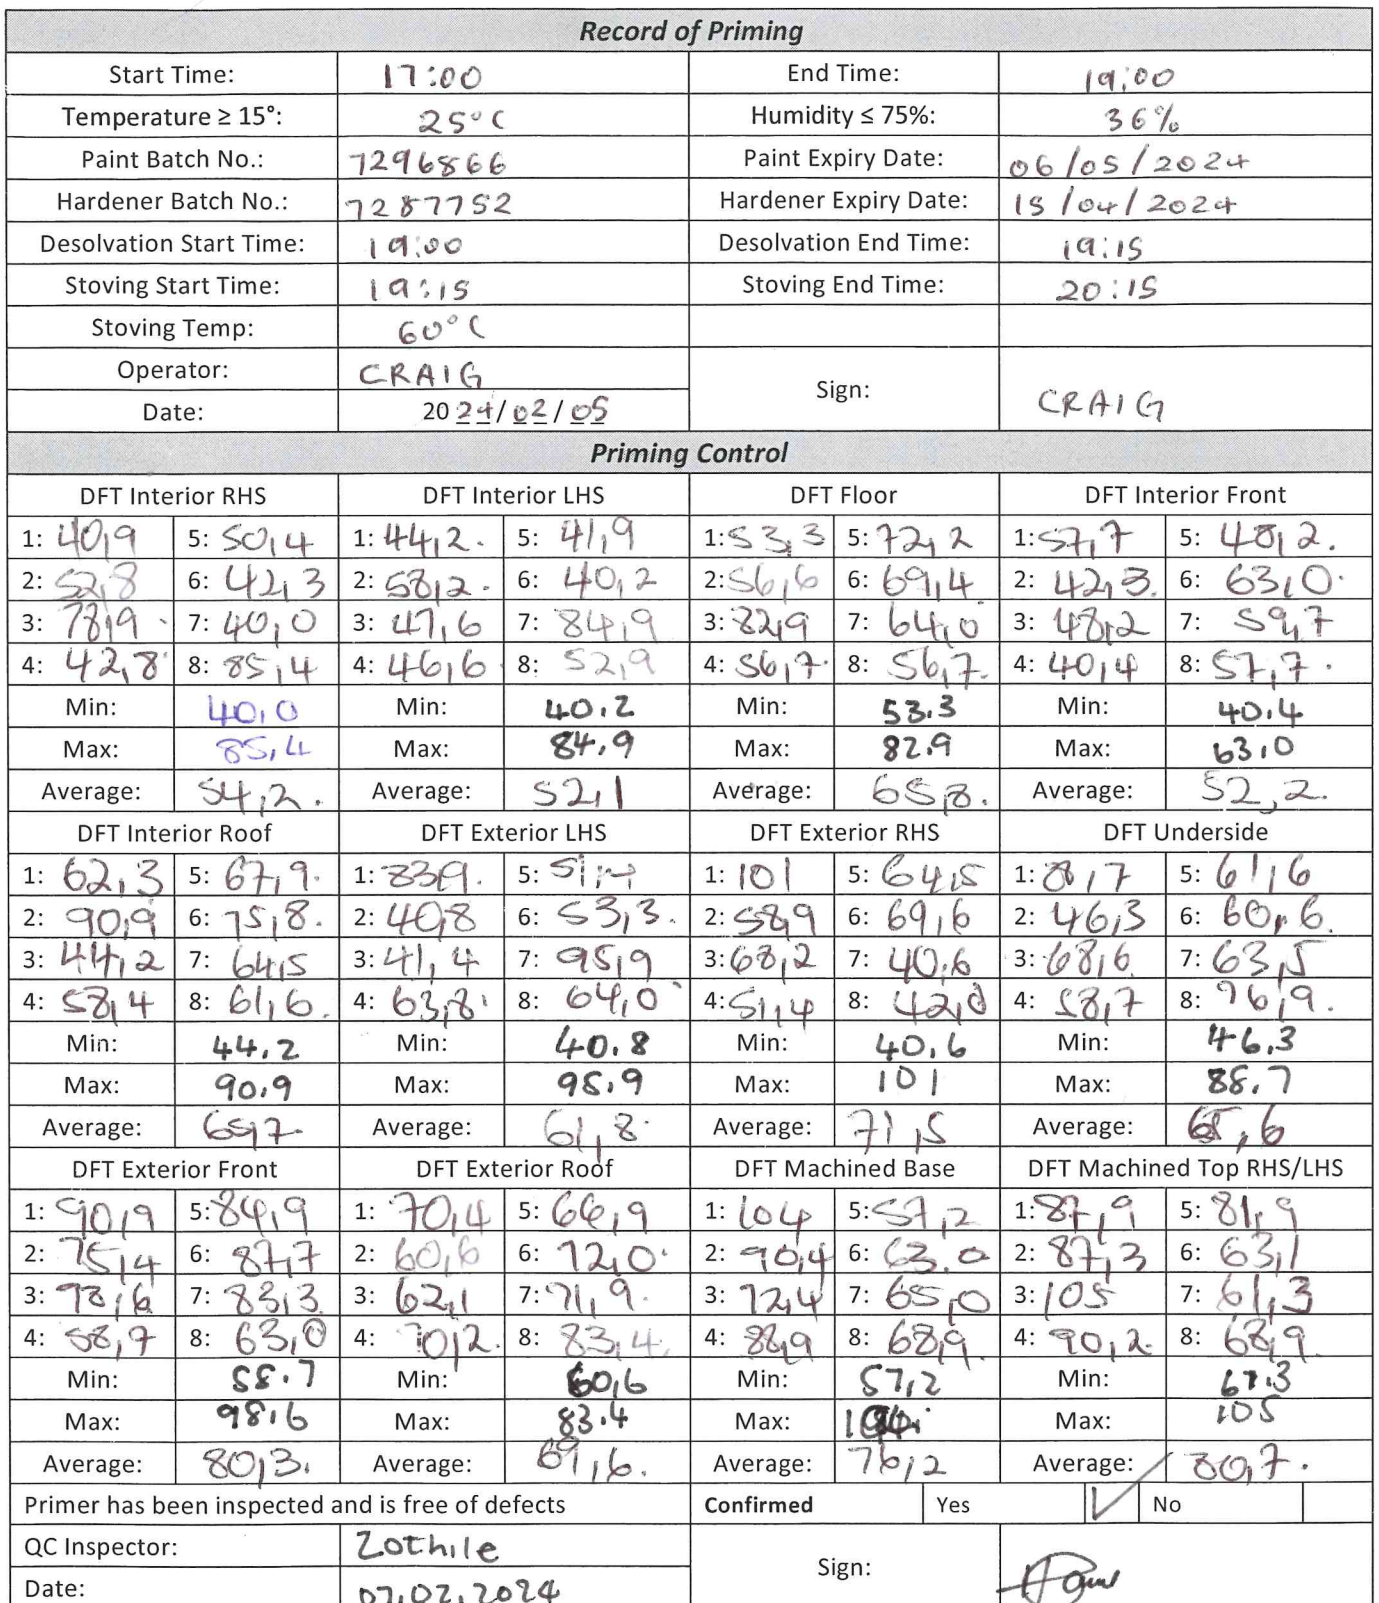 Record of Priming
Start Time: 17:00 End Time: 19:00
Temperature ≥ 15°: 25°C Humidity ≤ 75%: 36%
Paint Batch No.: 7296866 Paint Expiry Date: 06/05/2024
Hardener Batch No.: 7287752 Hardener Expiry Date: 15/04/2024
Desolvation Start Time: 19:00 Desolvation End Time: 19:15
Stoving Start Time: 19:15 Stoving End Time: 20:15
Stoving Temp: 60°C
Operator: CRAIG Sign: CRAIG
Date: 2024/02/05
Priming Control
DFT Interior RHS DFT Interior LHS DFT Floor DFT Interior Front
1: 40,9 5: 50,4 1: 44,2. 5: 41,9 1: 53,3 5: 72,2 1: 57,7 5: 48,2.
2: 52,8 6: 42,3 2: 58,2. 6: 40,2 2: 56,6 6: 69,4 2: 42,3. 6: 63,0.
3: 78,9. 7: 40,0 3: 47,6 7: 84,9 3: 82,9 7: 64,0 3: 48,2 7: 59,7
4: 42,8 8: 85,4 4: 46,6 8: 52,9 4: 56,7. 8: 56,7. 4: 40,4 8: 57,7.
Min: 40,0 Min: 40.2 Min: 53.3 Min: 40.4
Max: 85,4 Max: 84.9 Max: 82.9 Max: 63.0
Average: 54,2. Average: 52,1 Average: 65,8. Average: 52,2.
DFT Interior Roof DFT Exterior LHS DFT Exterior RHS DFT Underside
1: 62,3 5: 67,9. 1: 83,9. 5: 51,4 1: 101 5: 64,5 1: 88,7 5: 61,6
2: 90,9 6: 75,8. 2: 40,8 6: 53,3. 2: 58,9 6: 69,6 2: 46,3 6: 60,6.
3: 44,2 7: 64,5 3: 41,4 7: 95,9 3: 68,2 7: 40,6 3: 68,6. 7: 63,5
4: 58,4 8: 61,6. 4: 63,8. 8: 64,0 4: 51,4 8: 42,0 4: 58,7 8: 76,9.
Min: 44.2 Min: 40.8 Min: 40,6 Min: 46.3
Max: 90.9 Max: 95.9 Max: 101 Max: 88.7
Average: 65,7. Average: 61,8. Average: 71,5 Average: 65,6
DFT Exterior Front DFT Exterior Roof DFT Machined Base DFT Machined Top RHS/LHS
1: 90,9 5: 84,9 1: 70,4 5: 66,9 1: 104 5: 57,2 1: 87,9 5: 81,9
2: 75,4 6: 87,7 2: 60,6 6: 72,0. 2: 90,4 6: 63,0 2: 87,3 6: 63,1
3: 98,6 7: 83,3 3: 62,1 7: 71,9. 3: 72,4 7: 65,0 3: 105 7: 61,3
4: 58,7 8: 63,0 4: 70,2. 8: 83,4. 4: 88,9 8: 68,9. 4: 90,2. 8: 68,9
Min: 58.7 Min: 60,6 Min: 57,2 Min: 61.3
Max: 98.6 Max: 83.4 Max: 104 Max: 105
Average: 80,3. Average: 69,6. Average: 76,2 Average: 80,7.
Primer has been inspected and is free of defects Confirmed Yes ✓ No
QC Inspector: Zothile Sign:
Date: 07.02.2024